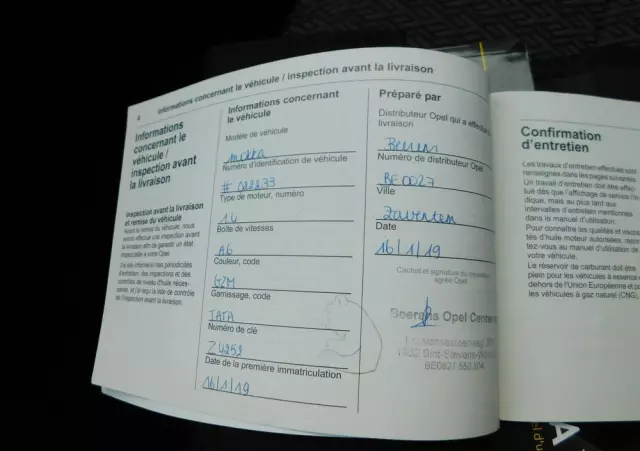 4
Informations concernant le véhicule / inspection avant la livraison
Informations
concernant le
véhicule /
inspection avant
la livraison
Inspection avant la livraison
et remise du véhicule
Avant la remise du véhicule, nous
avons effectué une inspection avant
la livraison afin de garantir un état
impeccable à votre Opel.
J'ai été informé(e) des périodicités
d'entretien, des inspections et des
contrôles de niveau d'huile néces-
saires, et j'ai reçu la liste de contrôle
de l'inspection avant la livraison.
Informations concernant
le véhicule
Modèle de véhicule
mokka
Numéro d'identification de véhicule
Type de moteur, numéro
1.4
Boîte de vitesses
A6
Couleur, code
GZM
Garnissage, code
TATA
Numéro de clé
Date de la première immatriculation
16/1/19
Préparé par
Distributeur Opel qui a effectué
livraison
Numéro de distributeur Opel
BE0027
Ville
Zaventem
Date
16/1/19
Cachet et signature du
agréé Opel
Opel Center
1932 Sint-Stevens-W
Confirmation
d'entretien
Les travaux d'entretien effectués sont
renseignés dans les pages suivantes.
Un travail d'entretien doit être effec-
tué dès que l'affichage de service l'in
dique, mais au plus tard aux
intervalles d'entretien mentionnés
dans le manuel d'utilisation.
Pour connaître les qualités et viscosi
tés d'huile moteur autorisées, repor
tez-vous au manuel d'utilisation de
votre véhicule.
Le réservoir de carburant doit être
plein pour les véhicules à essence
dehors de l'Union Européenne et po
les véhicules à gaz naturel (CNG).